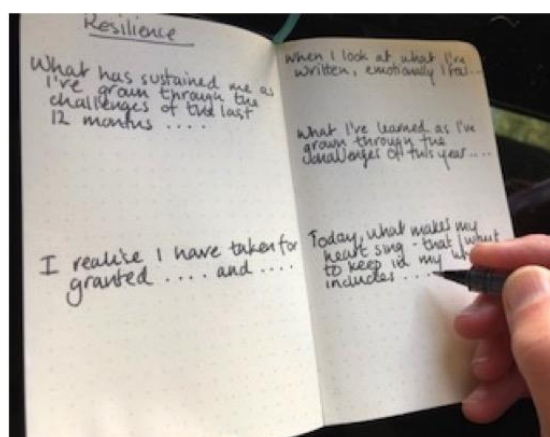 Resilience
What has sustained me as
I've grown through the
challenges of the last
12 months ....
I realise I have taken for
granted .... and ....
When I look at what I've
written, emotionally I feel...
What I've learned as I've
grown through the
challenges of this year....
Today, what makes my
heart sing - that I want
to keep in my
includes ....